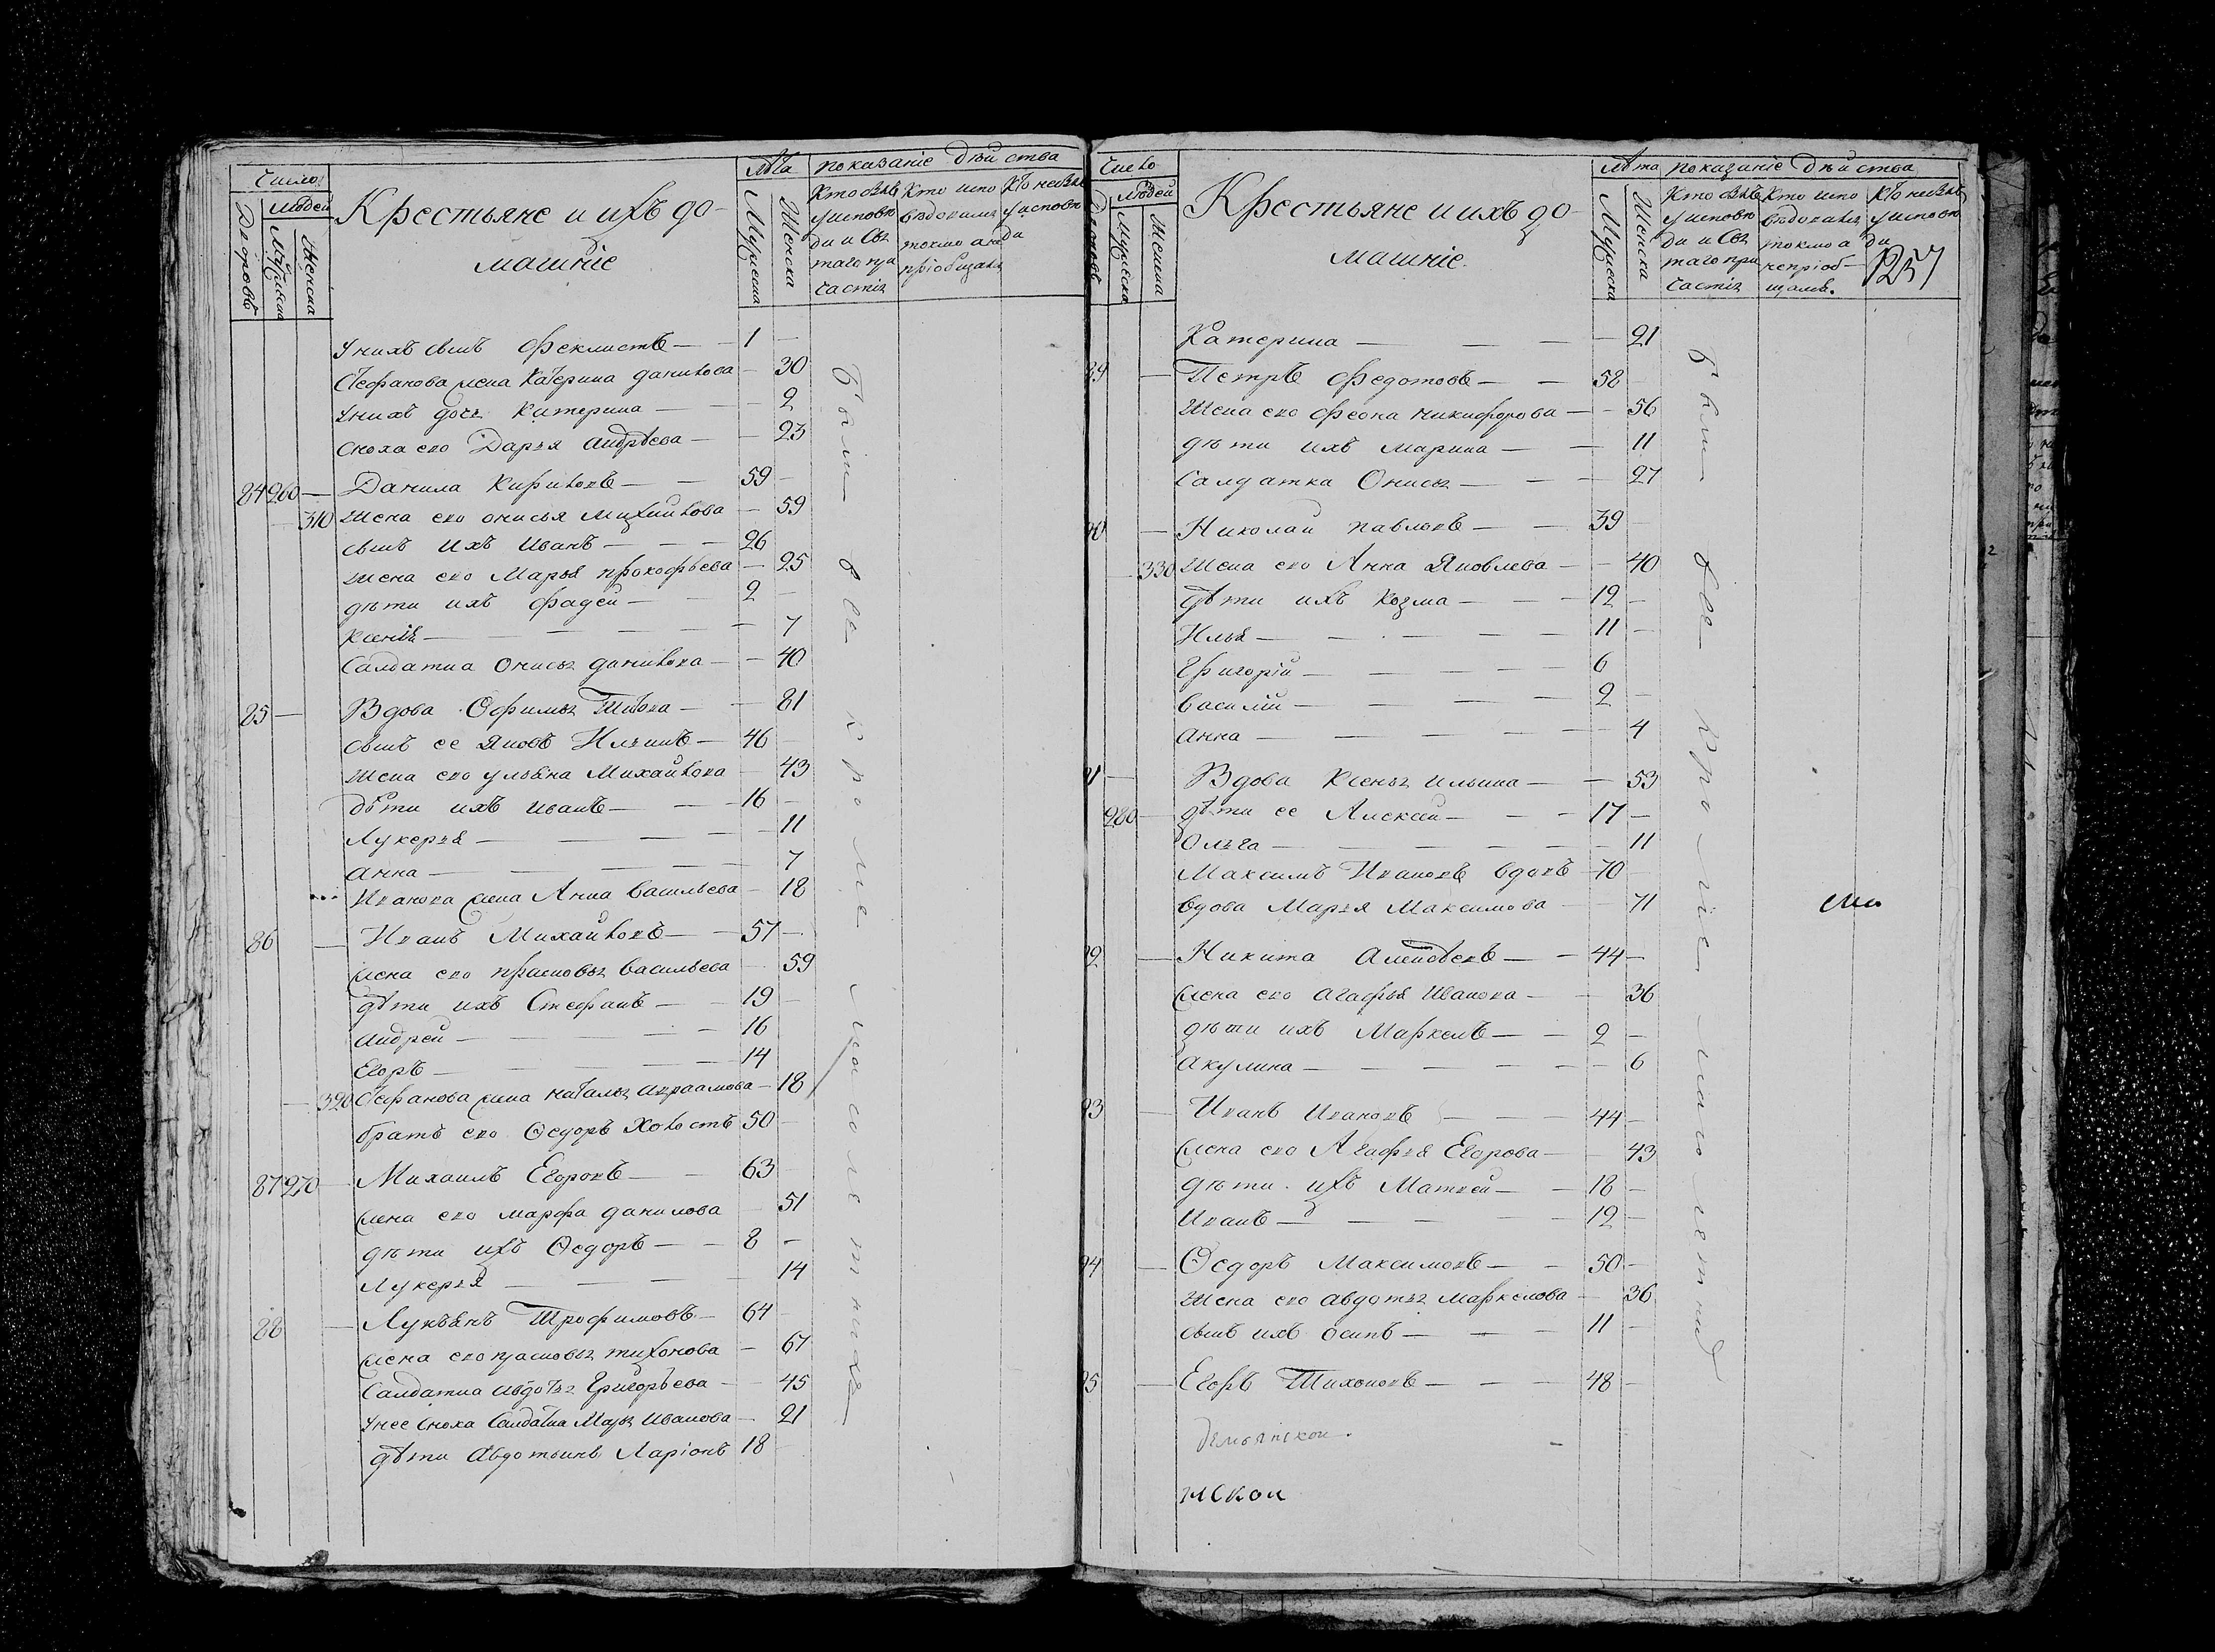 Число
Людей
Дворовъ
Мужеска
Женска
Крестьяне и ихъ до-
машніе
Лѣта
Мужеска
Женска
показаніе дѣйства
Кто былъ
у исповѣ
ди и Свя
таго при
частія
Кто испо
вѣдовался
токмо а не
пріобщался
Кто небылъ
у исповѣ
ди
у нихъ сынъ Феклистъ — 1 —
Стефанова жена Катерина данилова — 30
у нихъ дочь Катерина — 2
сноха его Дарья Андрѣева — 23
84 260 — Данила Кириловъ — 59 —
— 310 Жена его онисья Михайлова — 59
сынъ ихъ Иванъ — 26
жена его Марья прокофьева — 25
дѣти ихъ фадей — 2 —
Ксенія — 7
Салдатка Онисья данилова — 40
85 — Вдова Офимья Титова — 81
сынъ ее Яковъ Ильинъ — 46 —
жена его ульяна Михайлова — 43
дѣти ихъ иванъ — 16 —
Лукерья — 11
анна — 7
Иванова жена Анна васильева — 18
86 — Иванъ Михайловъ — 57 —
жена его прасковья васильева — 59
дѣти ихъ Стефанъ — 19 —
андрей — 16
Егоръ — 14
— 320 Стефанова жена наталья авраамова — 18
братъ его Ѳедоръ Холостъ 50 —
87 270 — Михаилъ Егоровъ — 63
жена его марфа данилова — 51
дѣти ихъ Ѳедоръ — 8 —
Лукерья — 14
88 — Лукьянъ Трофимовъ — 64
жена его прасковья тихонова — 67
Салдатка авдотья Григорьева — 45
у нее сноха Салдатка Марья иванова — 21
дѣти Авдотьинъ Ларіонъ 18 —
были все кроме малолетныхъ
Число
Людей
Мужеска
Женска
Крестьяне и ихъ до-
машніе.
Лѣта
Мужеска
Женска
показаніе дѣйства
Кто былъ
у исповѣ
ди и Свя
таго при
частія
Кто испо
вѣдовался
токмо а
непріоб-
щался.
Кто небылъ
у исповѣ
ди
257
Катерина — 21
89 — Петръ Федотовъ — 58 —
Жена его феона никифорова — 56
дѣти ихъ марина — 11
Салдатка Онисья — 27
90 — Николай павловъ — 39
— 330 Жена его Анна Яковлева — 40
дѣти ихъ козма — 12 —
Илья — 11 —
Григорій — 6
василій — 2 —
анна — 4
91 — Вдова Ксенья ильина — 53
280 — дѣти ее Алексей — 17 —
Ольга — 11
Максимъ Ивановъ вдовъ 70 —
вдова Марья Максимова — 71
92 — Никита — 44 —
жена его агафья Иванова — 36
дѣти ихъ Маркелъ — 2 —
акулина — 6
93 — Иванъ Ивановъ — 44 —
жена его Агафья Егорова — 43
дѣти ихъ Матвей — 18 —
Иванъ — 12 —
94 — Ѳедоръ Максимовъ — 50 —
Жена его авдотья маркелова — 36
сынъ ихъ осипъ — 11 —
95 — Егоръ Тихоновъ — 48 —
нской
были все кроме малолетныхъ